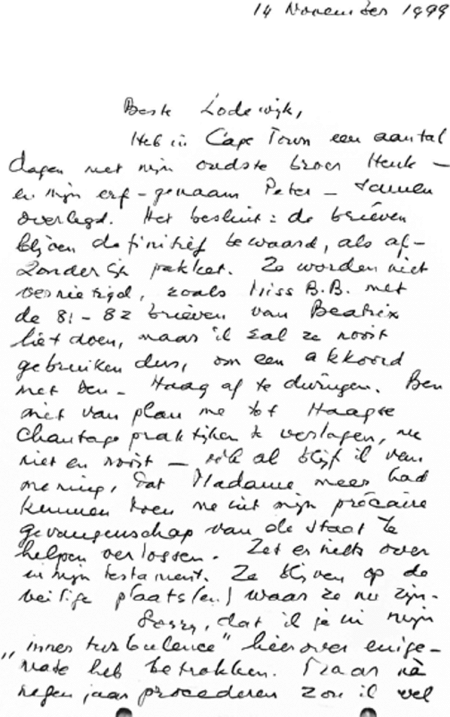 14 November 1999
Beste Lodewijk,
Heb in Cape Town een aantal
dagen met mijn oudste broer Henk –
en mijn erf-genaam Peter – samen
overlegd. Het besluit: de brieven
blijven definitief bewaard, als af-
zonderlijk pakket. Ze worden niet
vernietigd, zoals Miss B.B. met
de 81-82 brieven van Beatrix
liet doen, maar ik zal ze nooit
gebruiken dus, om een akkoord
met Den-Haag af te dwingen. Ben
niet van plan me tot Haagse
chantage praktijken te verlagen, nu
niet en nooit – ook al blijf ik van
mening, dat Madame meer had
kunnen doen me uit mijn précaire
gevangenschap van de staat te
helpen verlossen. Zet er iets over
in mijn testament. Ze blijven op de
veilige plaats(en) waar ze nu zijn.
Sorry, dat ik je in mijn
„inner turbulence" hierover enige-
mate heb betrokken. Maar na
negen jaar procederen zou ik wel